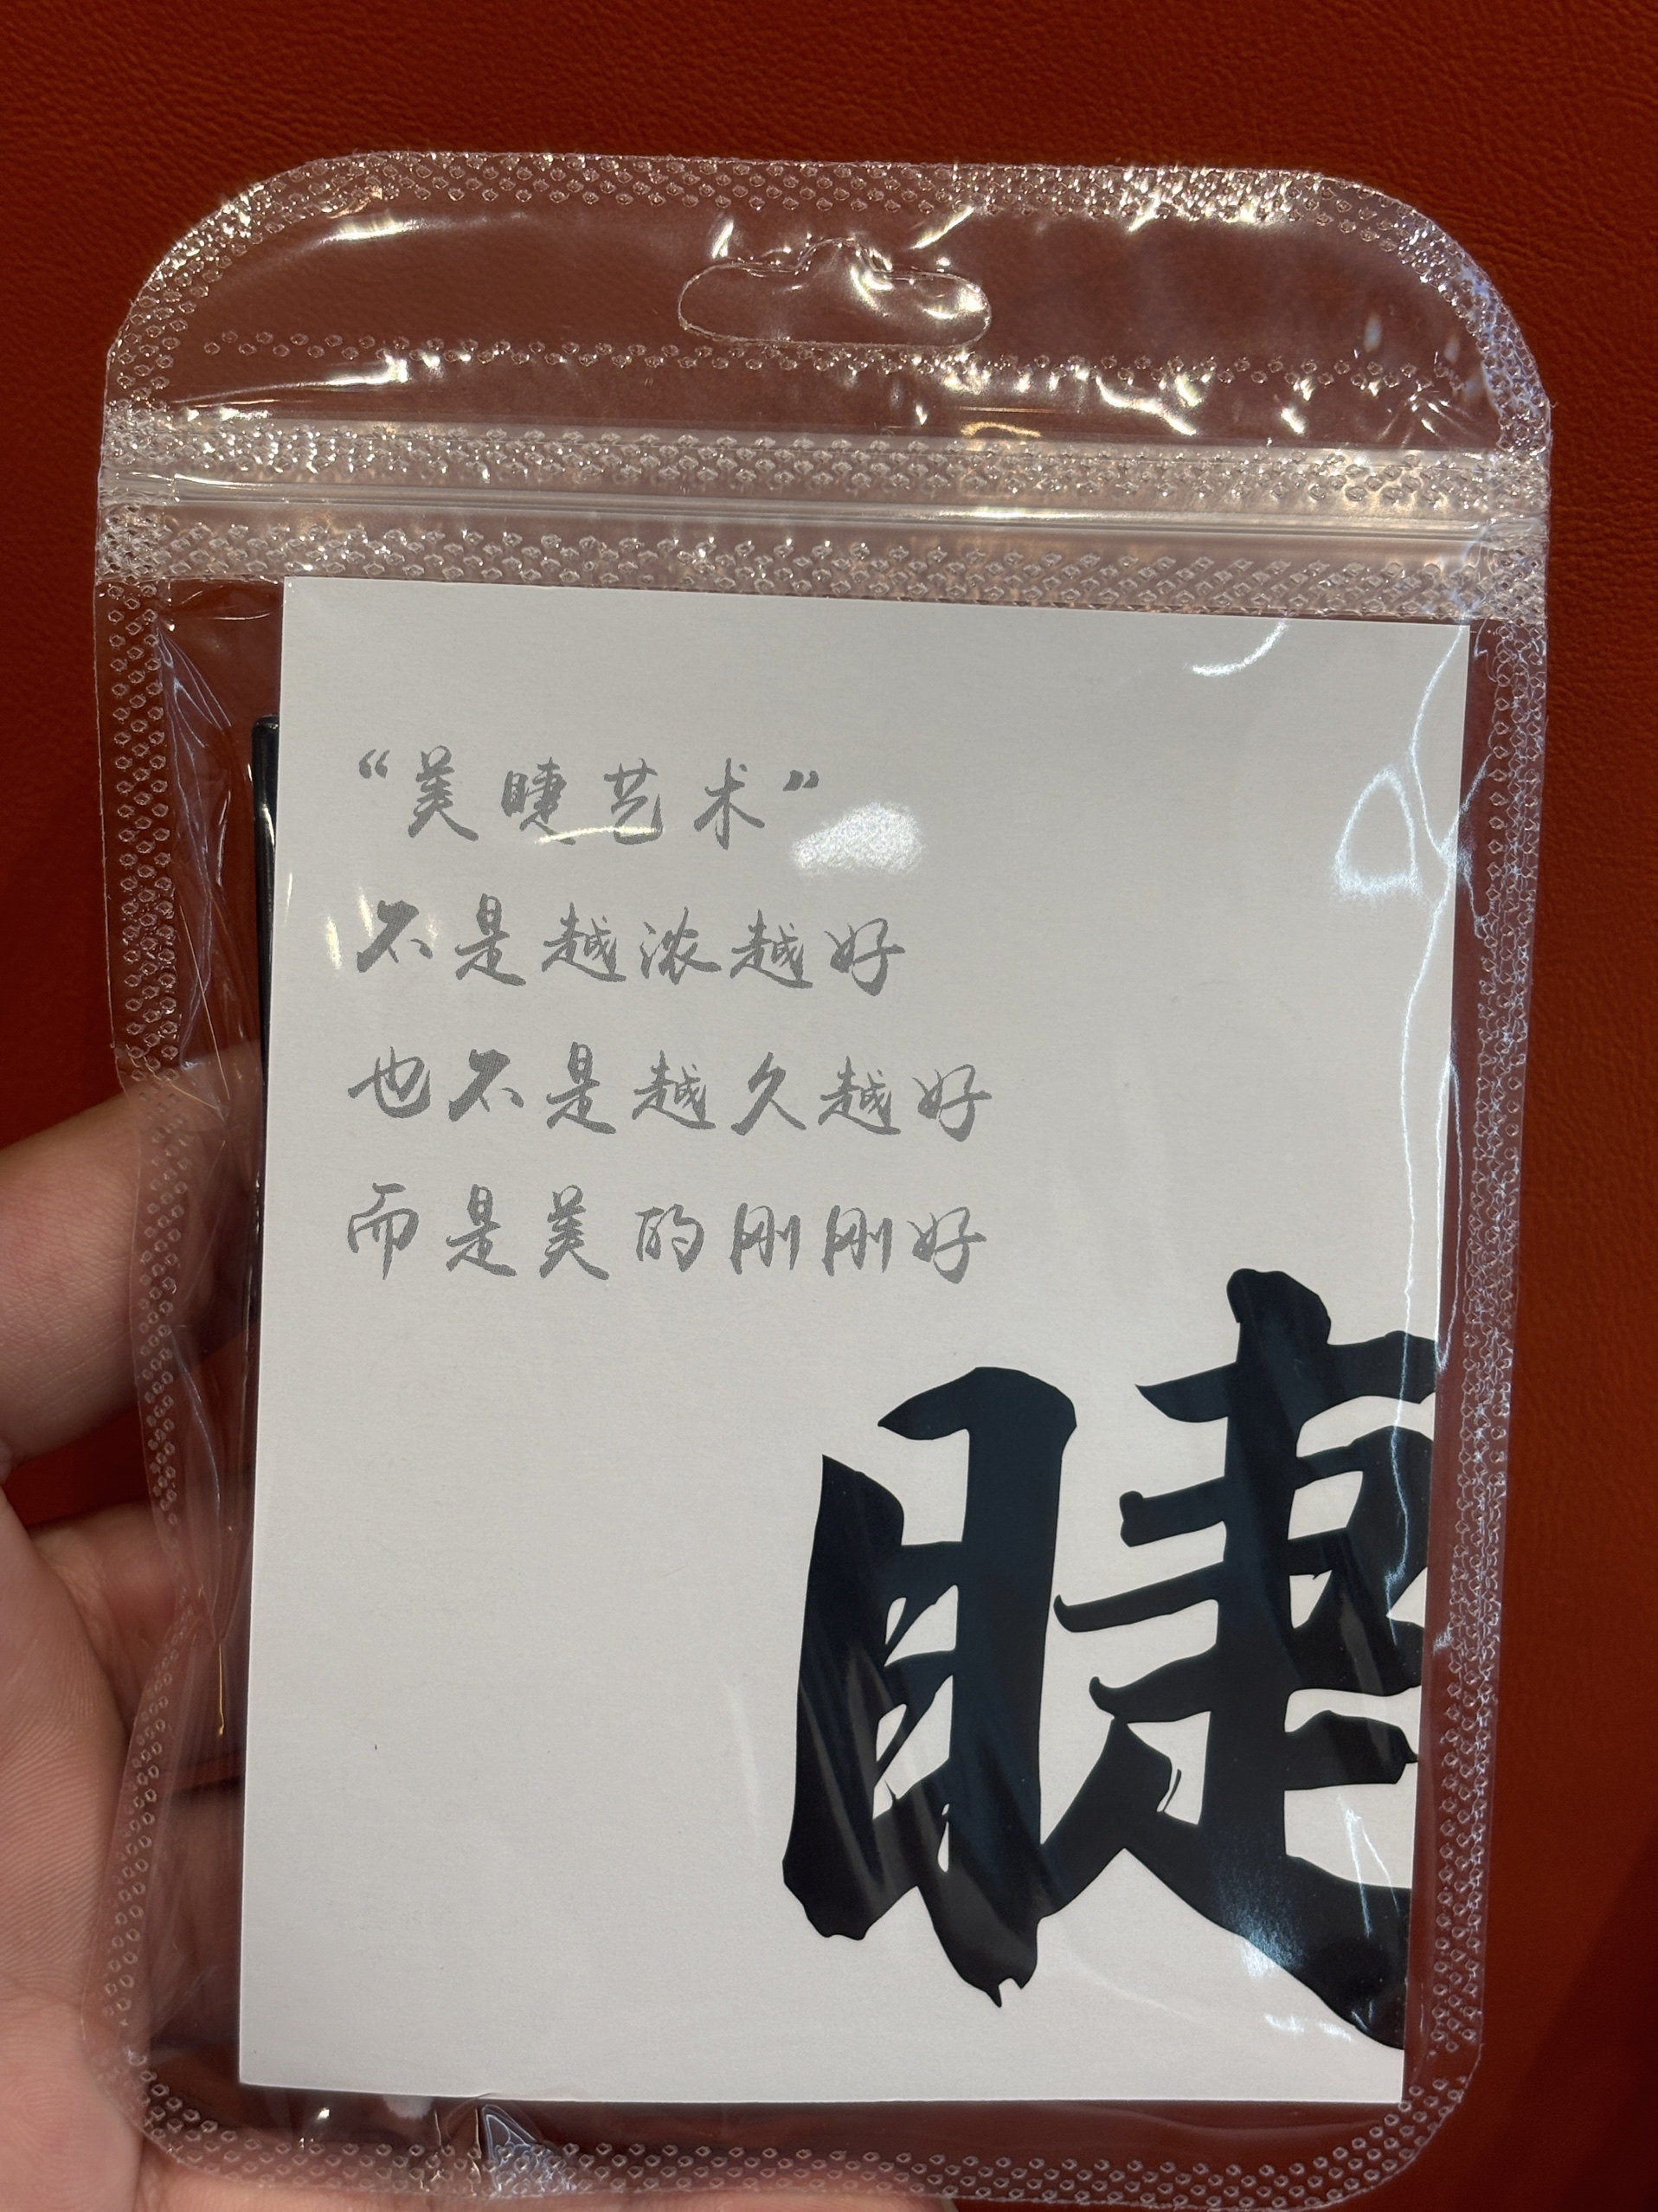 “美睫艺术”
不是越浓越好
也不是越久越好
而是美的刚刚好
睫